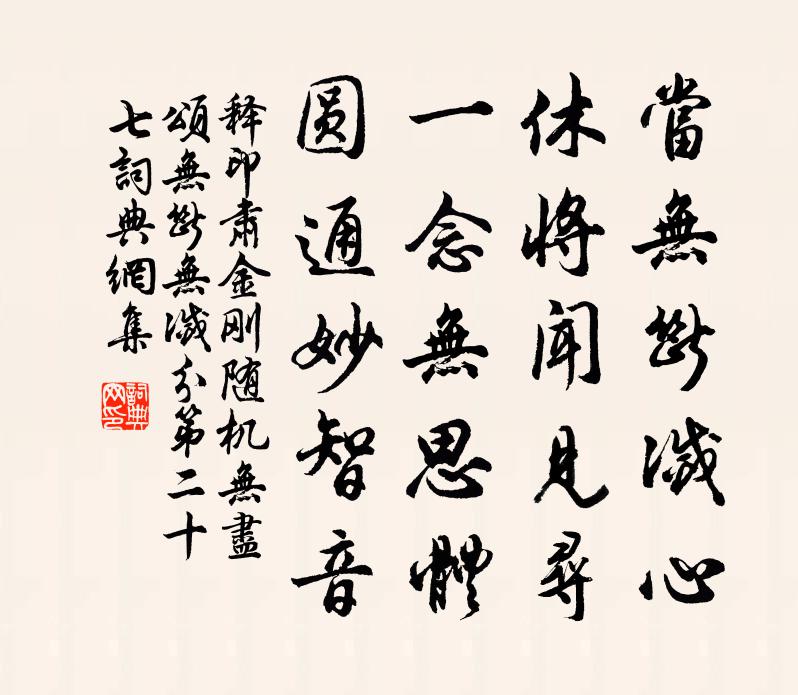 當無斷滅心
休將聞見尋
一念無思體
圆通妙智音
释印肅金剛随机無盡
頌無斷無滅分第二十
七詞典網集
詞典
网印